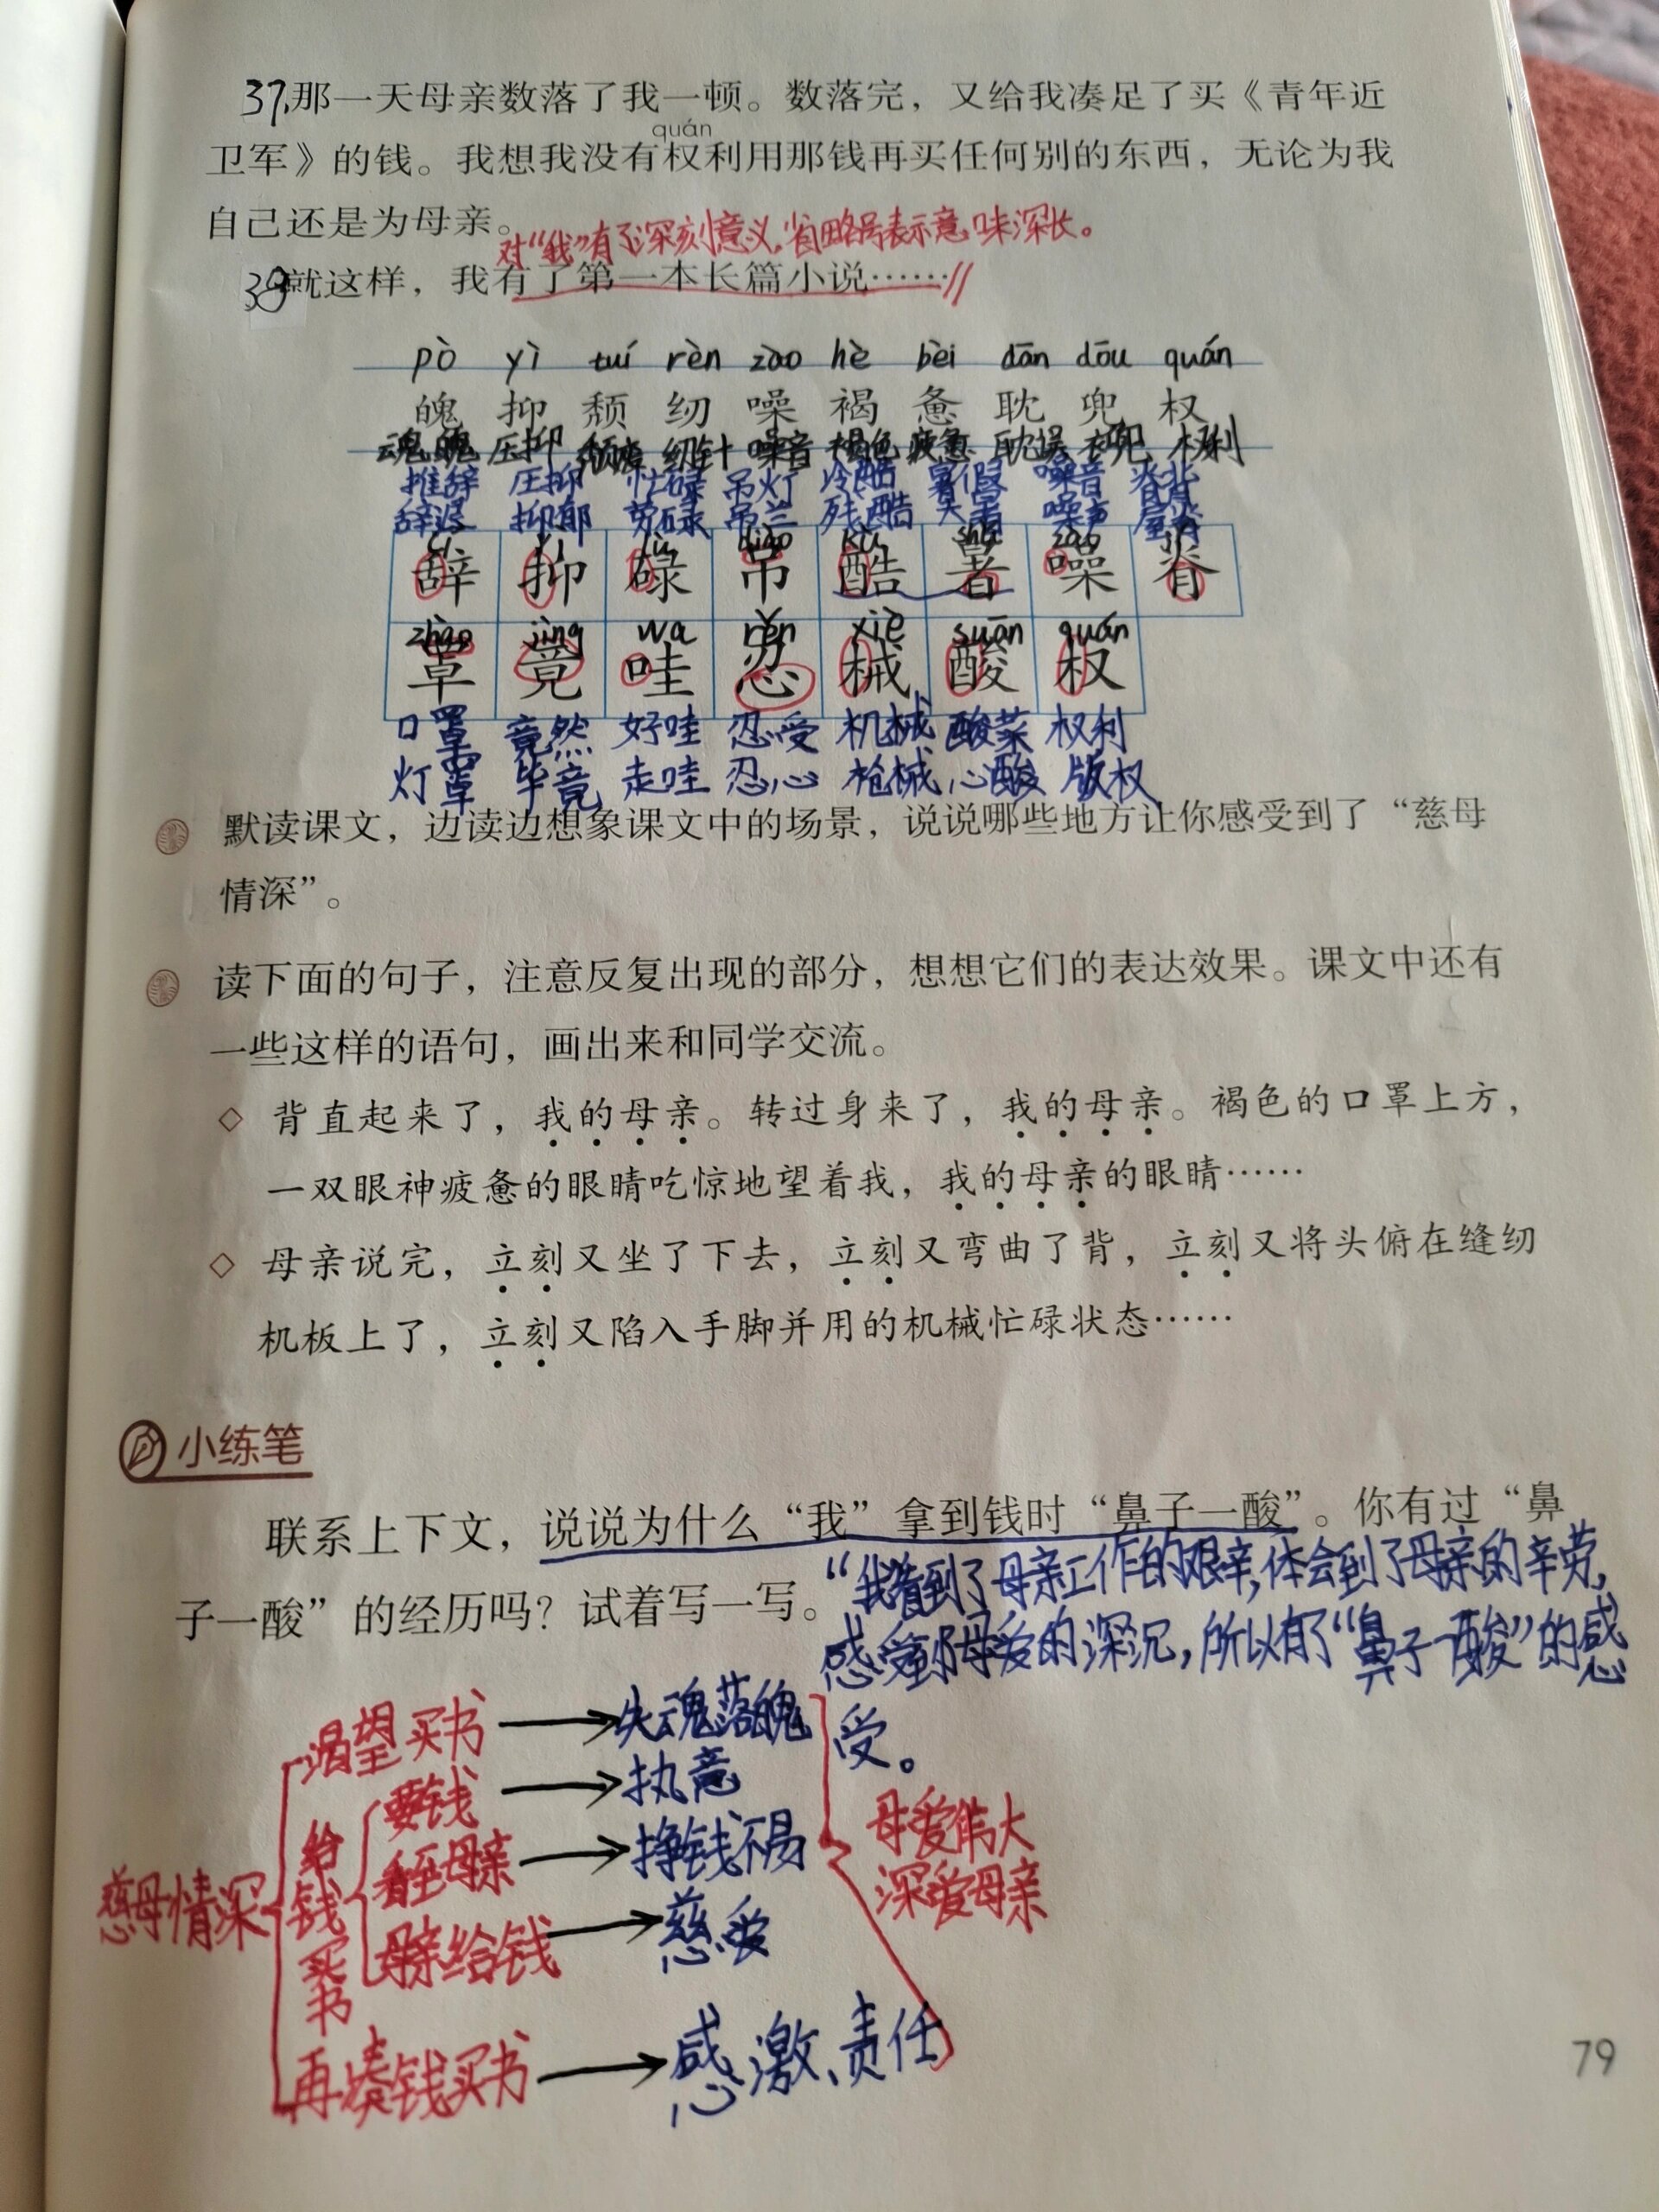 37.那一天母亲数落了我一顿。数落完，又给我凑足了买《青年近
quán
卫军》的钱。我想我没有权利用那钱再买任何别的东西，无论为我
自己还是为母亲。
对“我”有了深刻意义，省略号表示意味深长。
38就这样，我有了第一本长篇小说……//
pò yì tuí rèn zào hè bèi dān dōu quán
魄 抑 颓 纫 噪 褐 惫 耽 兜 权
魂魄 压抑 颓废 纫针 噪音 褐色 疲惫 耽误 衣兜 权利
推辞 压抑 忙碌 吊灯 冷酷 暑假 噪音 脊背
辞退 抑郁 劳碌 吊兰 残酷 大暑 噪声 屋脊
cí yì lù diào kù shǔ zào jǐ
辞 抑 碌 吊 酷 暑 噪 脊
zhào jìng wa rěn xiè suān quán
罩 竟 哇 忍 械 酸 权
口罩 竟然 好哇 忍受 机械 酸菜 权利
灯罩 毕竟 走哇 忍心 枪械 心酸 版权
默读课文，边读边想象课文中的场景，说说哪些地方让你感受到了“慈母
情深”。
读下面的句子，注意反复出现的部分，想想它们的表达效果。课文中还有
一些这样的语句，画出来和同学交流。
◇ 背直起来了，我的母亲。转过身来了，我的母亲。褐色的口罩上方，
一双眼神疲惫的眼睛吃惊地望着我，我的母亲的眼睛……
◇ 母亲说完，立刻又坐了下去，立刻又弯曲了背，立刻又将头俯在缝纫
机板上了，立刻又陷入手脚并用的机械忙碌状态……
小练笔
联系上下文，说说为什么“我”拿到钱时“鼻子一酸”。你有过“鼻
子一酸”的经历吗？试着写一写。
“我看到了母亲工作的艰辛，体会到了母亲的辛劳，
感受到母爱的深沉，所以有了“鼻子一酸”的感
受。
慈母情深
渴望买书→失魂落魄
给钱买书
要钱→执意
看至母亲→挣钱不易
母亲给钱→慈爱
再凑钱买书→感激、责任
母爱伟大
深爱母亲
79